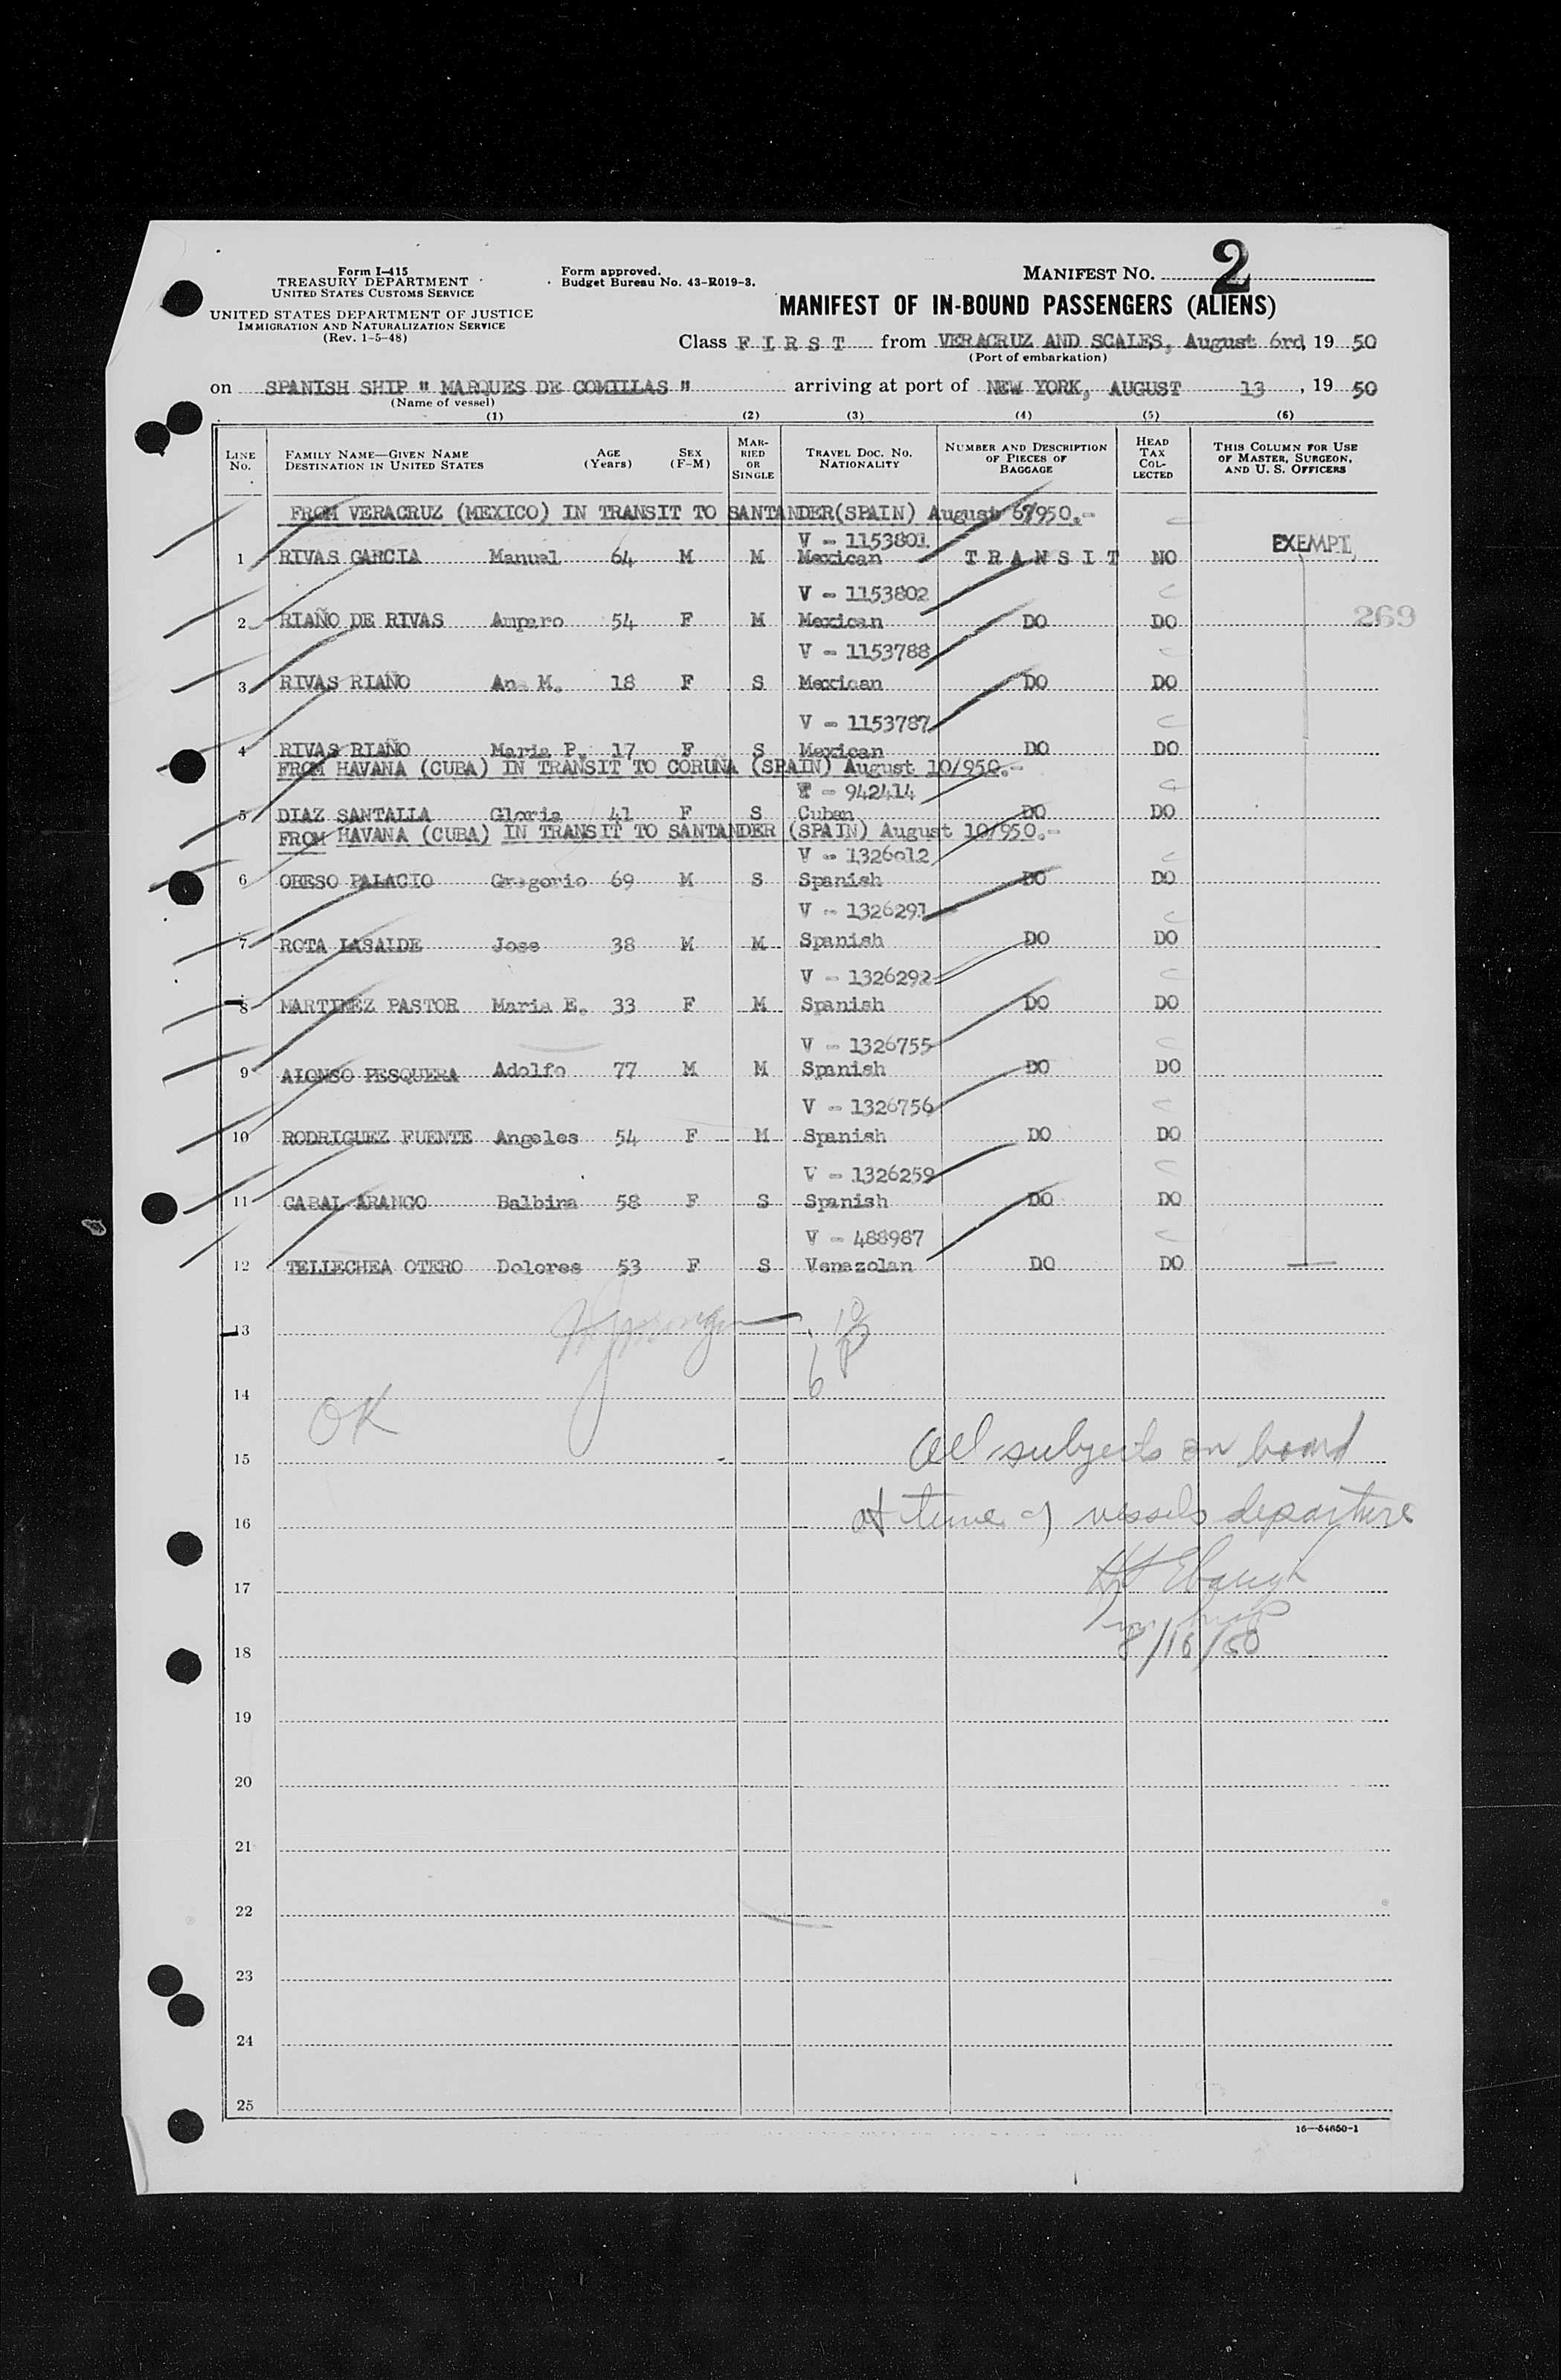 Form I-415
TREASURY DEPARTMENT
UNITED STATES CUSTOMS SERVICE
UNITED STATES DEPARTMENT OF JUSTICE
IMMIGRATION AND NATURALIZATION SERVICE
(Rev. 1-5-48)
Form approved.
Budget Bureau No. 43-R019-3.
MANIFEST NO. 2
MANIFEST OF IN-BOUND PASSENGERS (ALIENS)
Class F I R S T from VERACRUZ AND SCALES, August 6rd, 19 50
(Port of embarkation)
on SPANISH SHIP " MARQUES DE COMILLAS " arriving at port of NEW YORK, AUGUST 13, 19 50
(Name of vessel)
(1) (2) (3) (4) (5) (6)
LINE No. FAMILY NAME—GIVEN NAME DESTINATION IN UNITED STATES AGE (Years) SEX (F-M) MARRIED OR SINGLE TRAVEL DOC. NO. NATIONALITY NUMBER AND DESCRIPTION OF PIECES OF BAGGAGE HEAD TAX COLLECTED THIS COLUMN FOR USE OF MASTER, SURGEON, AND U. S. OFFICERS
FROM VERACRUZ (MEXICO) IN TRANSIT TO SANTANDER(SPAIN) August 6/950.-
V - 1153801
1 RIVAS GARCIA Manuel 64 M M Mexican T R A N S I T NO EXEMPT
V - 1153802
2 RIAÑO DE RIVAS Amparo 54 F M Mexican DO DO 269
V - 1153788
3 RIVAS RIAÑO Ana M. 18 F S Mexican DO DO
V - 1153787
4 RIVAS RIAÑO Maria P. 17 F S Mexican DO DO
FROM HAVANA (CUBA) IN TRANSIT TO CORUÑA (SPAIN) August 10/950.-
- 942414
5 DIAZ SANTALLA Gloria 41 F S Cuban DO DO
FROM HAVANA (CUBA) IN TRANSIT TO SANTANDER (SPAIN) August 10/950.-
V - 1326012
6 OBESO PALACIO Gregorio 69 M S Spanish DO DO
V - 1326291
7 ROTA LASALDE Jose 38 M M Spanish DO DO
V - 1326292
8 MARTINEZ PASTOR Maria E. 33 F M Spanish DO DO
V - 1326755
9 ALONSO PESQUERA Adolfo 77 M M Spanish DO DO
V - 1326756
10 RODRIGUEZ FUENTE Angeles 54 F M Spanish DO DO
V - 1326259
11 CABAL ARANGO Balbina 58 F S Spanish DO DO
V - 488987
12 TELLECHEA OTERO Dolores 53 F S Venezolan DO DO
13
14
OK
15 All subjects on board
16 at time of vessels departure
17 Ebaugh
18 8/16/50
19
20
21
22
23
24
25
16—54650-1